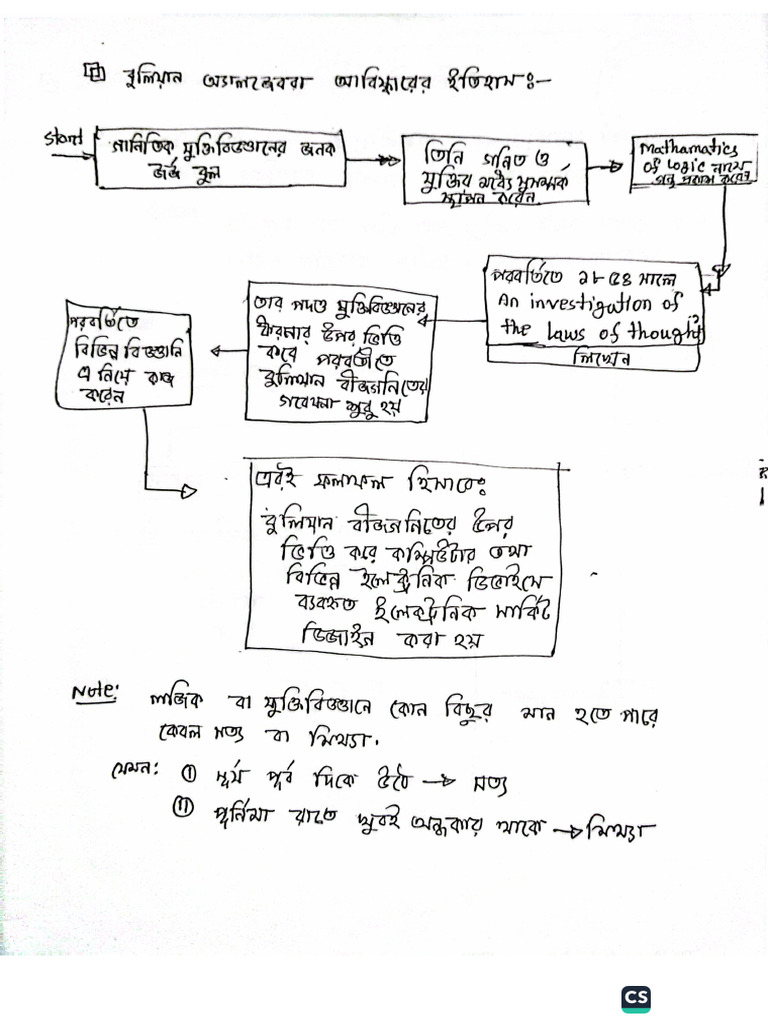 বুলিয়ান অ্যালজেবরা আবিষ্কারের ইতিহাস:-
Start
গানিতিক যুক্তিবিজ্ঞানের জনক
জর্জ বুল
তিনি গনিত ও
যুক্তির মধ্যে সুসম্পর্ক
স্থাপন করেন
Mathamatics
of Logic নামে
গ্রন্থ প্রকাশ করেন
পরবর্তিতে ১৮৫৪ সালে
An investigation of
the laws of thought
লিখেন
তার পদত্ত যুক্তিবিজ্ঞানের
ধারনার উপর ভিত্তি
করে পরবর্তীতে
বুলিয়ান বীজগনিতের
গবেষনা শুরু হয়
পরবর্তিতে
বিভিন্ন বিজ্ঞানি
এ নিয়ে কাজ
করেন
এরই ফলাফল হিসাবে:
বুলিয়ান বীজগনিতের উপর
ভিত্তি করে কম্পিউটার তথা
বিভিন্ন ইলেক্ট্রনিক ডিভাইসে
ব্যবহৃত ইলেকট্রনিক সার্কিট
ডিজাইন করা হয়
Note: লজিক বা যুক্তিবিজ্ঞানে কোন কিছুর মান হতে পারে
কেবল সত্য বা মিথ্যা.
যেমন: (i) সূর্য পূর্ব দিকে উঠে → সত্য
(ii) পূর্নিমা রাতে খুবই অন্ধকার থাকে → মিথ্যা
CS